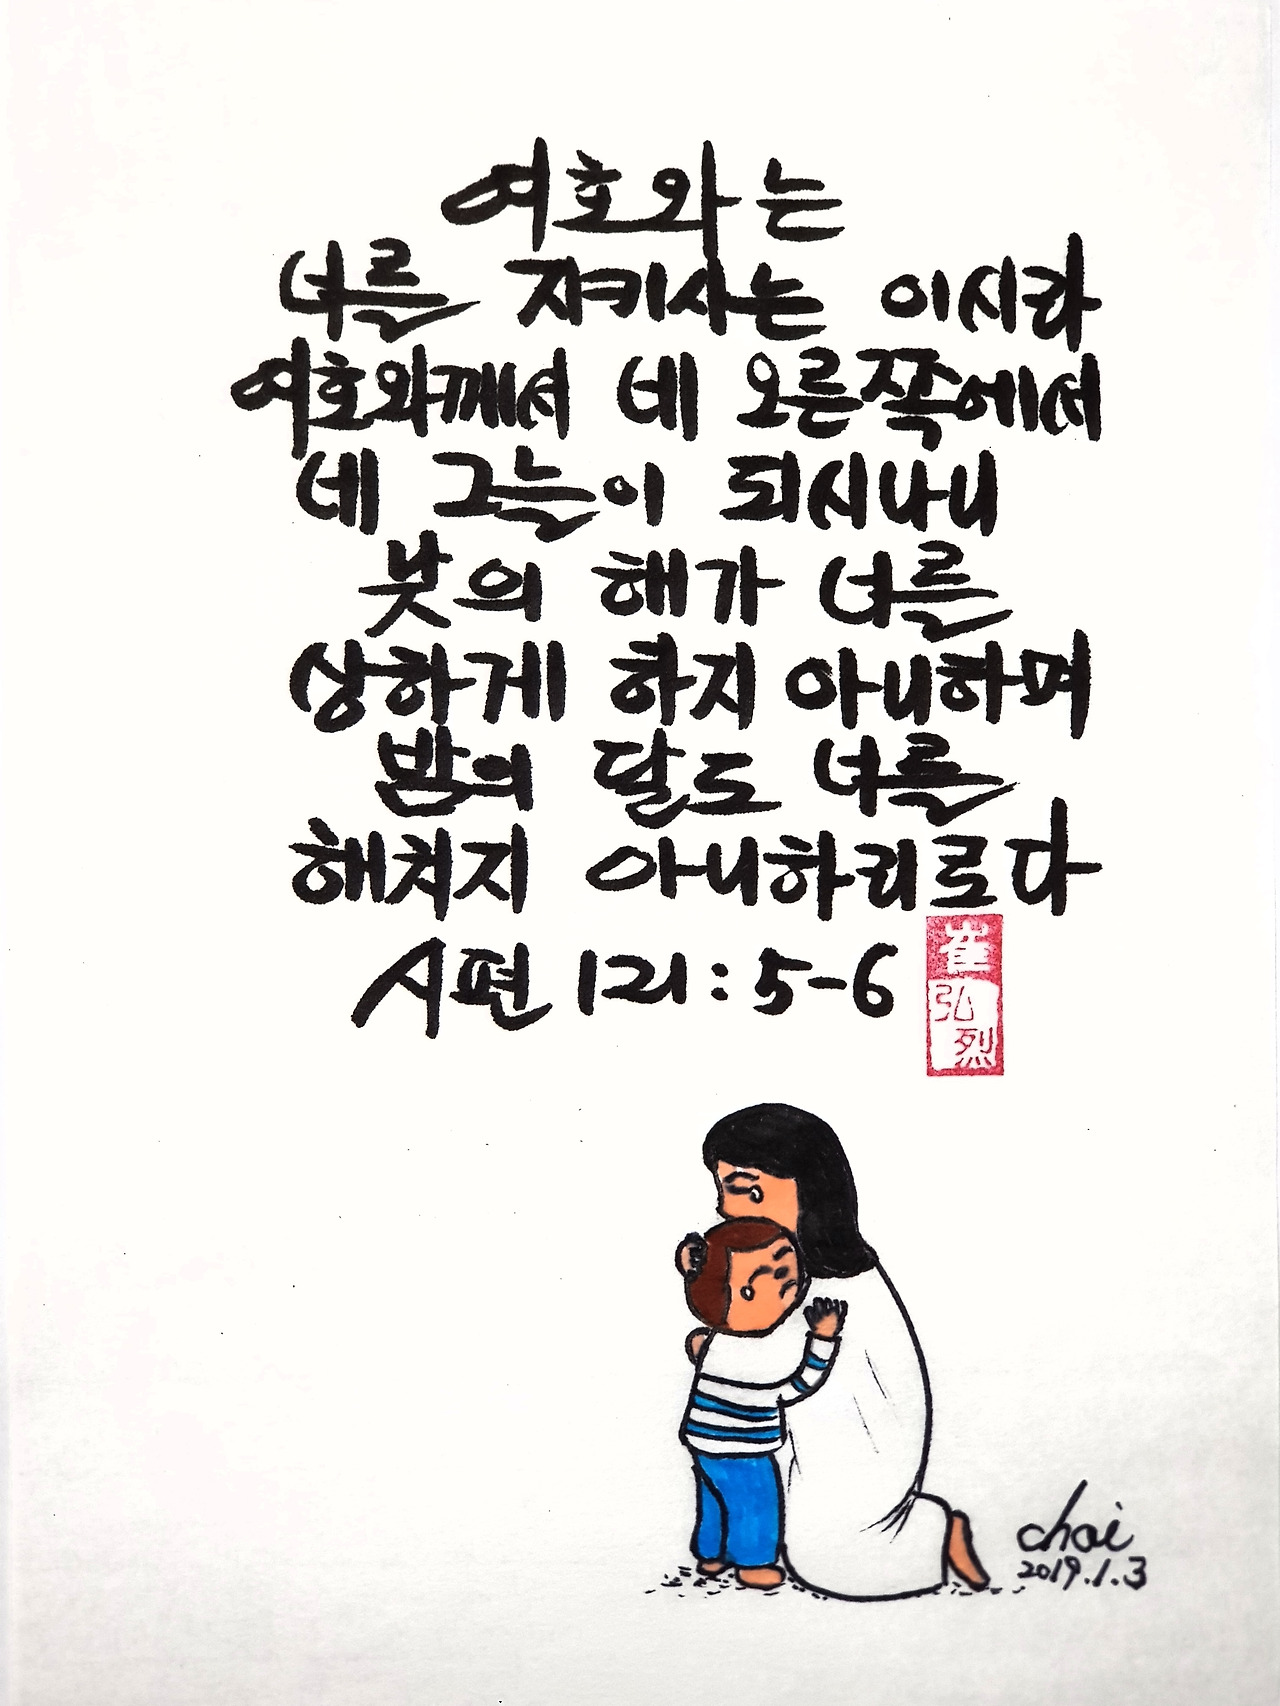 여호와는
너를 지키시는 이시라
여호와께서 네 오른쪽에서
네 그늘이 되시나니
낮의 해가 너를
상하게 하지 아니하며
밤의 달도 너를
해치지 아니하리로다
시편 121:5-6
崔
弘
烈
choi
2019.1.3